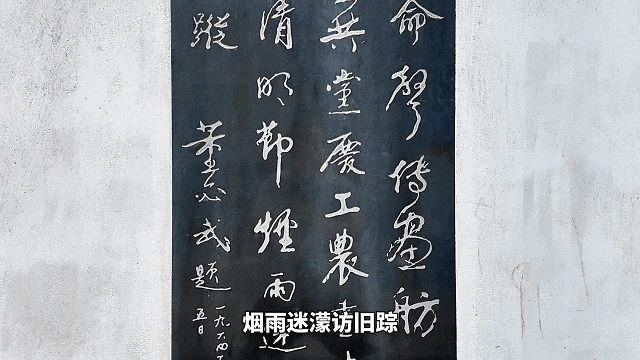 命聲傳畫舫
共黨慶工農
清明節煙雨迷
蹤
董必武題
一九六四
五日
烟雨迷濛访旧踪